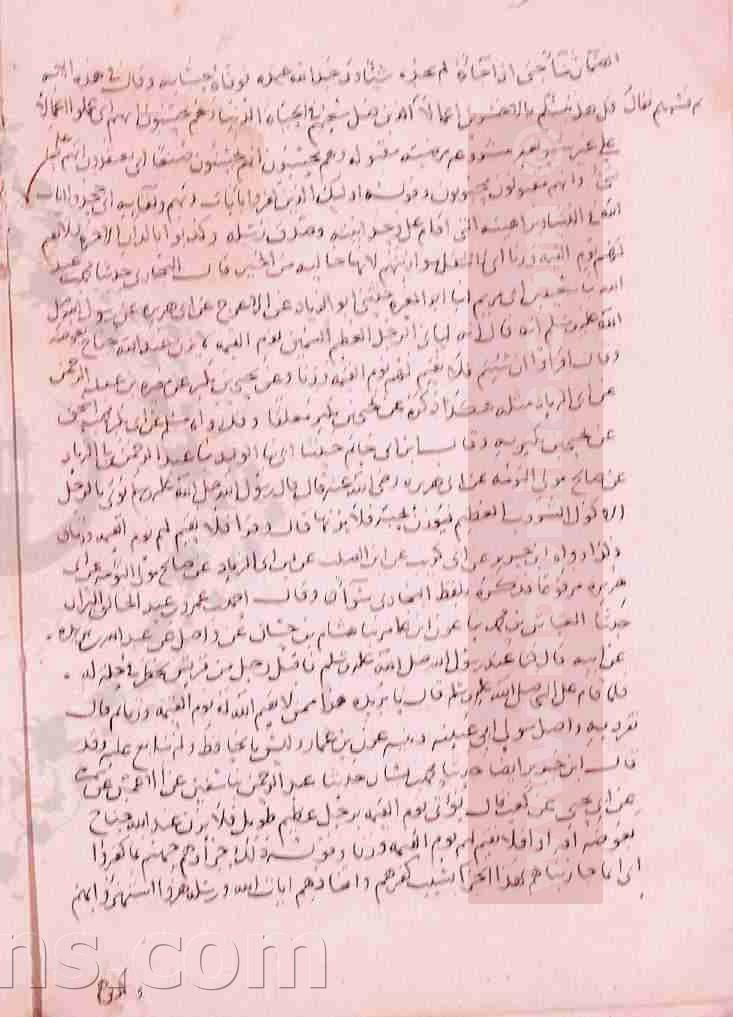 الظمآن ماء حتى اذا جاءه لم يجده شيئا ووجد الله عنده فوفاه حسابه وقال في هذه الاية
ثم فسرهم فقال قل هل ننبئكم بالاخسرين اعمالا الذين ضل سعيهم في الحياة الدنيا وهم يحسبون انهم اي عملوا اعمالا
على غير شريعة مشروعة مرضية مقبولة وهم يحسبون انهم يحسنون صنعا اي يعتقدون انهم على
شي وانهم مقبولون محبوبون وقوله اوليك الذين كفروا بايات ربهم ولقايه اي جحدوا ايات
الله في الدنيا وبراهينه التي اقام على وحدانيته وصدق رسله وكذبوا بالدار الاخرة فلا نقيم
لهم يوم القيمة وزنا اي لا نثقل موازينهم لانها خالية من الخير قال البخاري حدثنا محمد بن عبد
الله ثنا سعيد بن ابي مريم انبا المغيرة حدثني ابو الزناد عن الاعرج عن ابي هريرة عن رسول الله صلى
الله عليه وسلم انه قال انه لياتي الرجل العظيم السمين يوم القيمة لا يزن عند الله جناح بعوضة
وقال اقراوا ان شيتم فلا نقيم لهم يوم القيمة وزنا وعن يحيى بن بكير عن مغيرة بن عبد الرحمن
عن ابي الزناد مثله هكذا ذكره عن يحيى بن بكير معلقا وقد رواه مسلم عن ابي بكر محمد بن اسحق
عن يحيى بن بكير به وقال ابن ابي حاتم حدثنا ابي ثنا ابو الوليد ثنا عبد الرحمن بن ابي الزناد
عن صالح مولى التوامة عن ابي هريرة رضي الله عنه قال قال رسول الله صلى الله عليه وسلم يوتى بالرجل
الاكول الشروب العظيم فيوزن بحبة فلا يزنها قال وقرا فلا نقيم لهم يوم القيمة وزنا
وكذا رواه ابن جرير عن ابي كريب عن ابي الصلت عن ابن ابي الزناد عن صالح مولى التوامة عن ابي
هريرة مرفوعا فذكره بلفظ البخاري سوا وقال احمد بن عمرو بن عبد الخالق البزار
حدثنا العباس بن محمد ثنا عون بن عمارة ثنا هشام بن حسان عن واصل عن عبد الله بن بريدة
عن ابيه قال كنا عند رسول الله صلى الله عليه وسلم فاقبل رجل من قريش يخطر في حلة له
فلما قام على النبي صلى الله عليه وسلم قال يا بريدة هذا ممن لا يقيم الله له يوم القيمة وزنا ثم قال
تفرد به واصل مولى ابي عيينة وعنه عون بن عمارة وليس بالحافظ ولم يتابع عليه وقد
قال ابن جرير ايضا حدثنا محمد بن بشار حدثنا عبد الرحمن ثنا سفين عن الاعمش عن شمر
عن ابي يحيى عن كعب قال يوتى يوم القيمة برجل عظيم طويل فلا يزن عند الله جناح
بعوضة اقراوا فلا نقيم لهم يوم القيمة وزنا وقوله ذلك جزاوهم جهنم بما كفروا
اي انما جازيناهم بهذا الجزا بسبب كفرهم واتخاذهم ايات الله ورسله هزوا استهزوا بهم